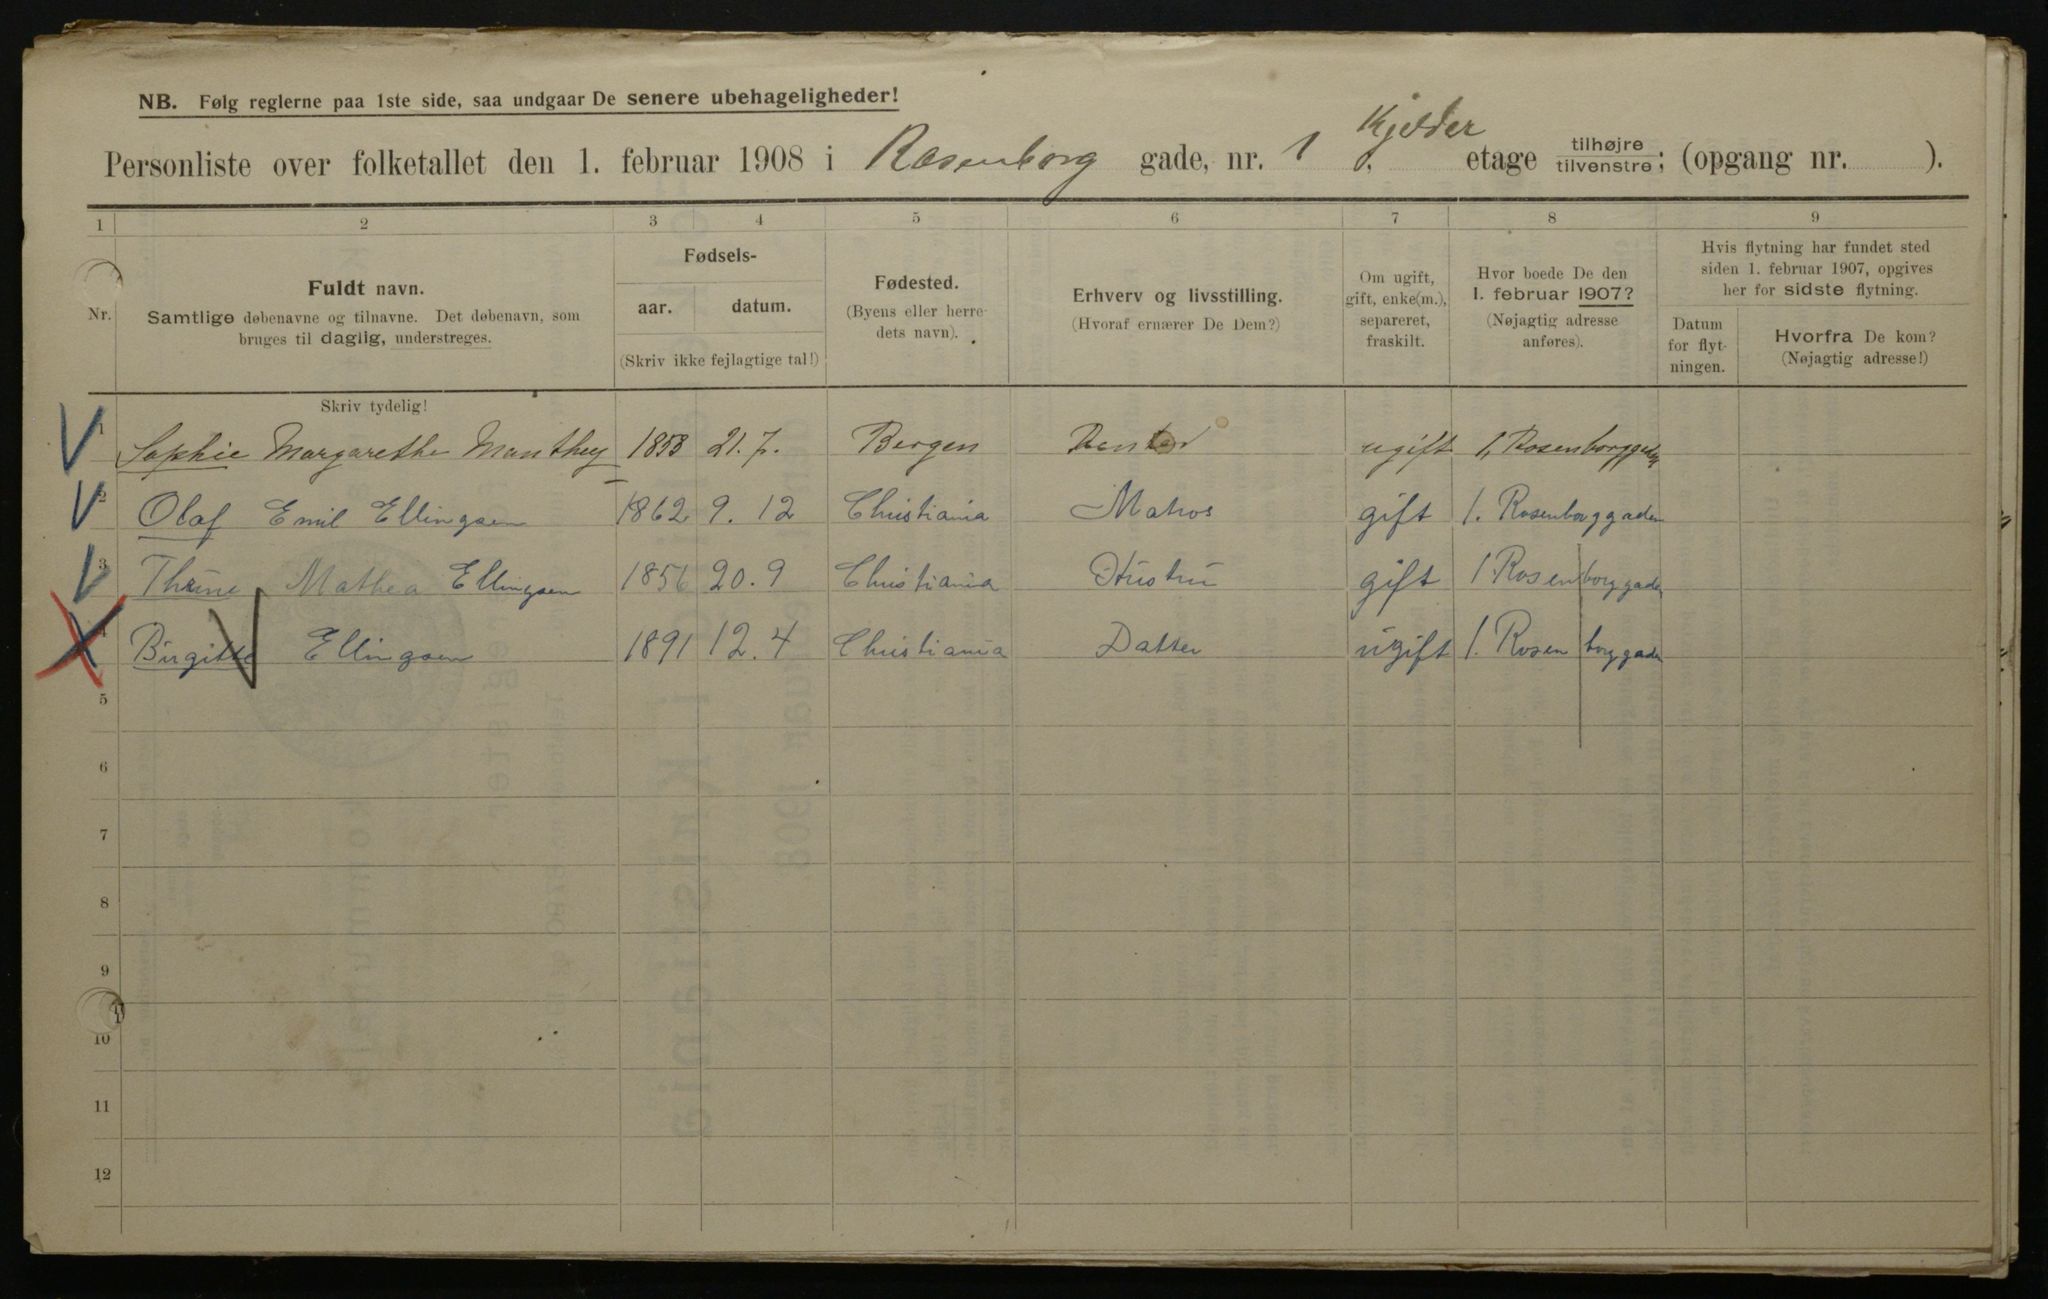 NB. Følg reglerne paa 1ste side, saa undgaar De senere ubehageligheder!
Kjelder
Personliste over folketallet den 1. februar 1908 i Rosenborg gade, nr. 1, etage tilhøjre tilvenstre; (opgang nr. ).
1 2 3 4 5 6 7 8 9
Nr.
Fuldt navn.
Samtlige døbenavne og tilnavne. Det døbenavn, som
bruges til daglig, understreges.
Fødsels-
aar. datum.
(Skriv ikke fejlagtige tal!)
Fødested.
(Byens eller herre-
dets navn).
Erhverv og livsstilling.
(Hvoraf ernærer De Dem?)
Om ugift,
gift, enke(m.),
separeret,
fraskilt.
Hvor boede De den
1. februar 1907?
(Nøjagtig adresse
anføres).
Hvis flytning har fundet sted
siden 1. februar 1907, opgives
her for sidste flytning.
Datum
for flyt-
ningen.
Hvorfra De kom?
(Nøjagtig adresse!)
Skriv tydelig!
1 Sophie Margarethe Manthey 1853 21. 7. Bergen ugift 1, Rosenborggaden
2 Olaf Emil Ellingsen 1862 9. 12 Christiania Matros gift 1. Rosenborggaden
3 Mathea Ellingsen 1856 20. 9 Christiania Hustru gift 1. Rosenborggaden
4 Birgitte Ellingsen 1891 12. 4 Christiania Datter ugift 1. Rosenborggaden
5
6
7
8
9
10
11
12